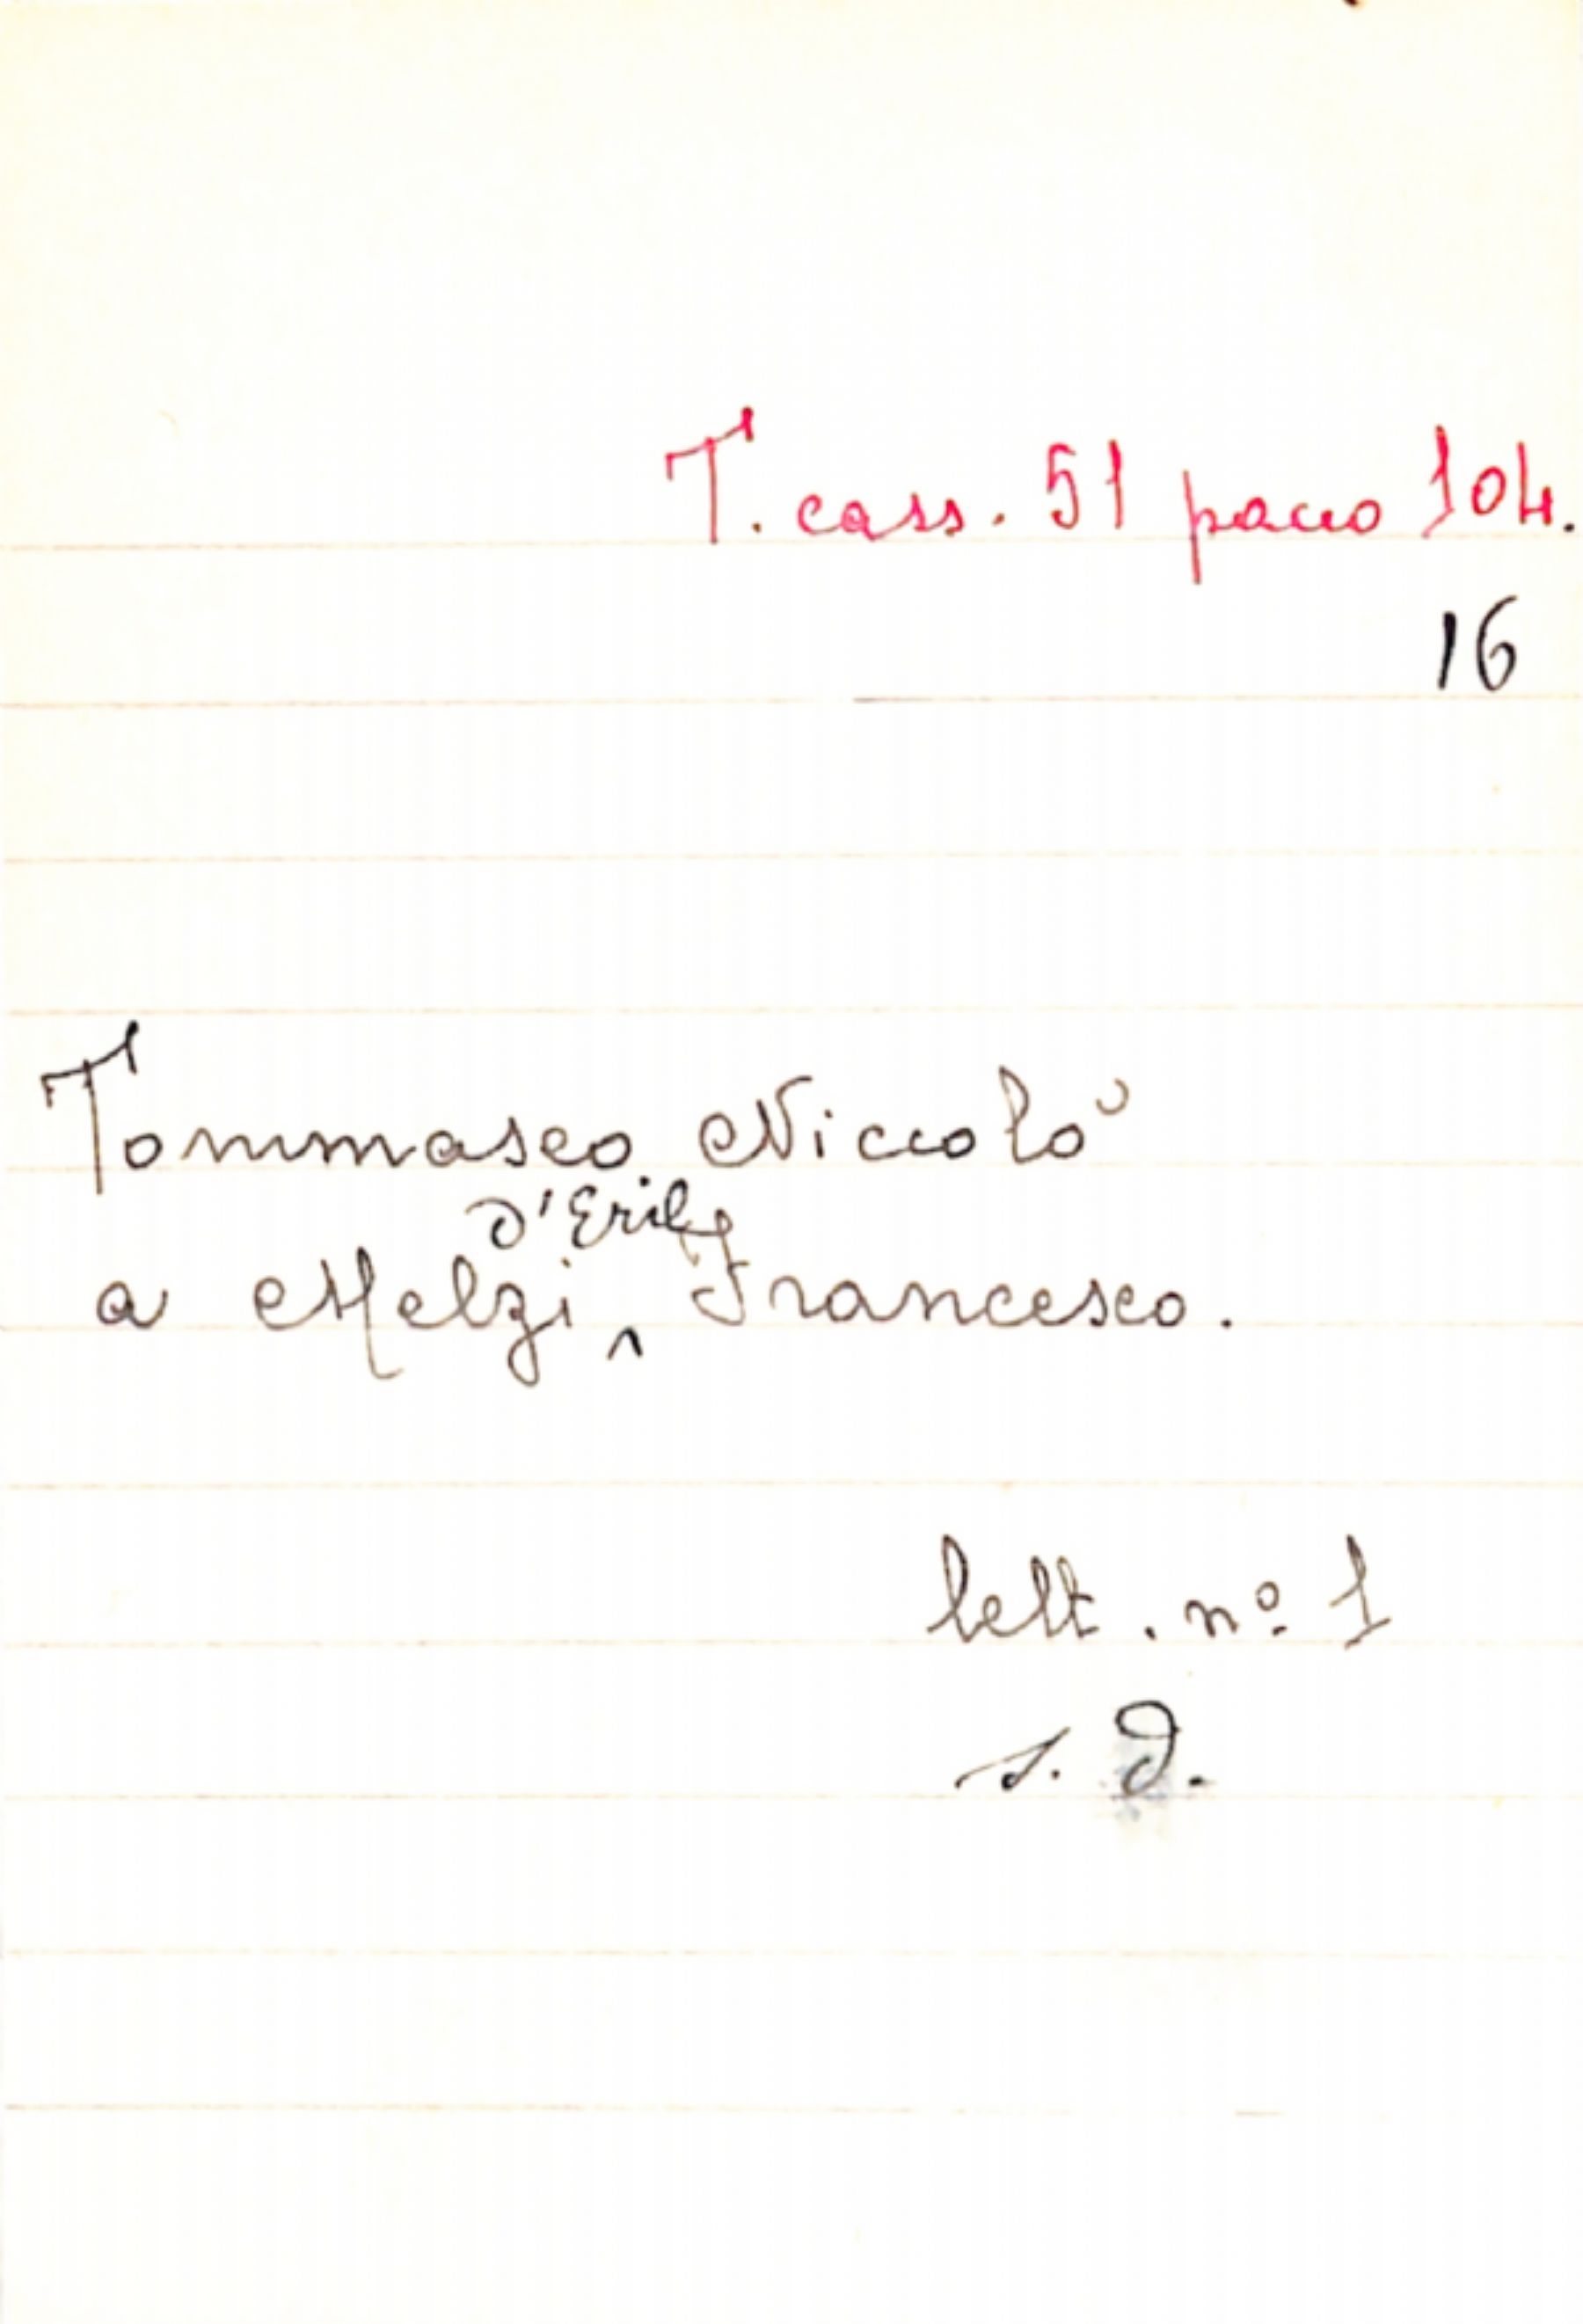 T. cass. 51 pacco 104.
16
Tommaseo Niccolò
a Melzi ^ d'Eril Francesco.
lett. nº 1
s. d.